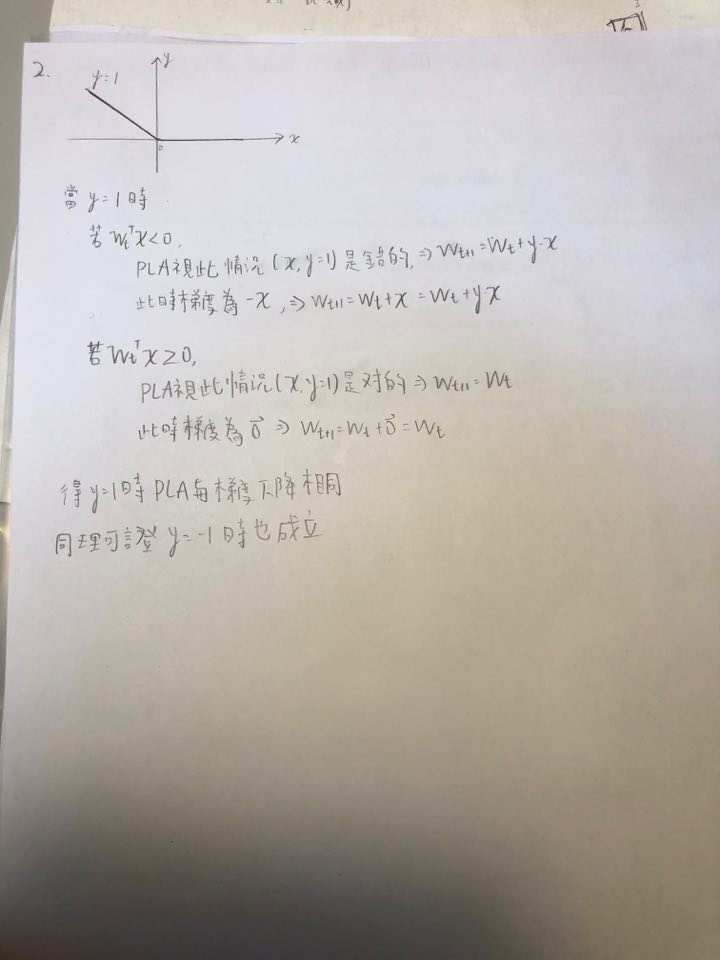 2.
y
y=1
x
0
當 y=1 時
若 wₜᵀx<0,
PLA視此情況(x,y=1)是錯的,⇒ wₜ₊₁=wₜ+y·x
此時梯度為 -x, ⇒ wₜ₊₁=wₜ+x = wₜ+y·x
若 wₜᵀx≥0,
PLA視此情況(x,y=1)是对的 ⇒ wₜ₊₁=wₜ
此時梯度為 0⃗ ⇒ wₜ₊₁=wₜ+0⃗=wₜ
得 y=1時 PLA與梯度下降相同
同理可證 y=-1 時也成立